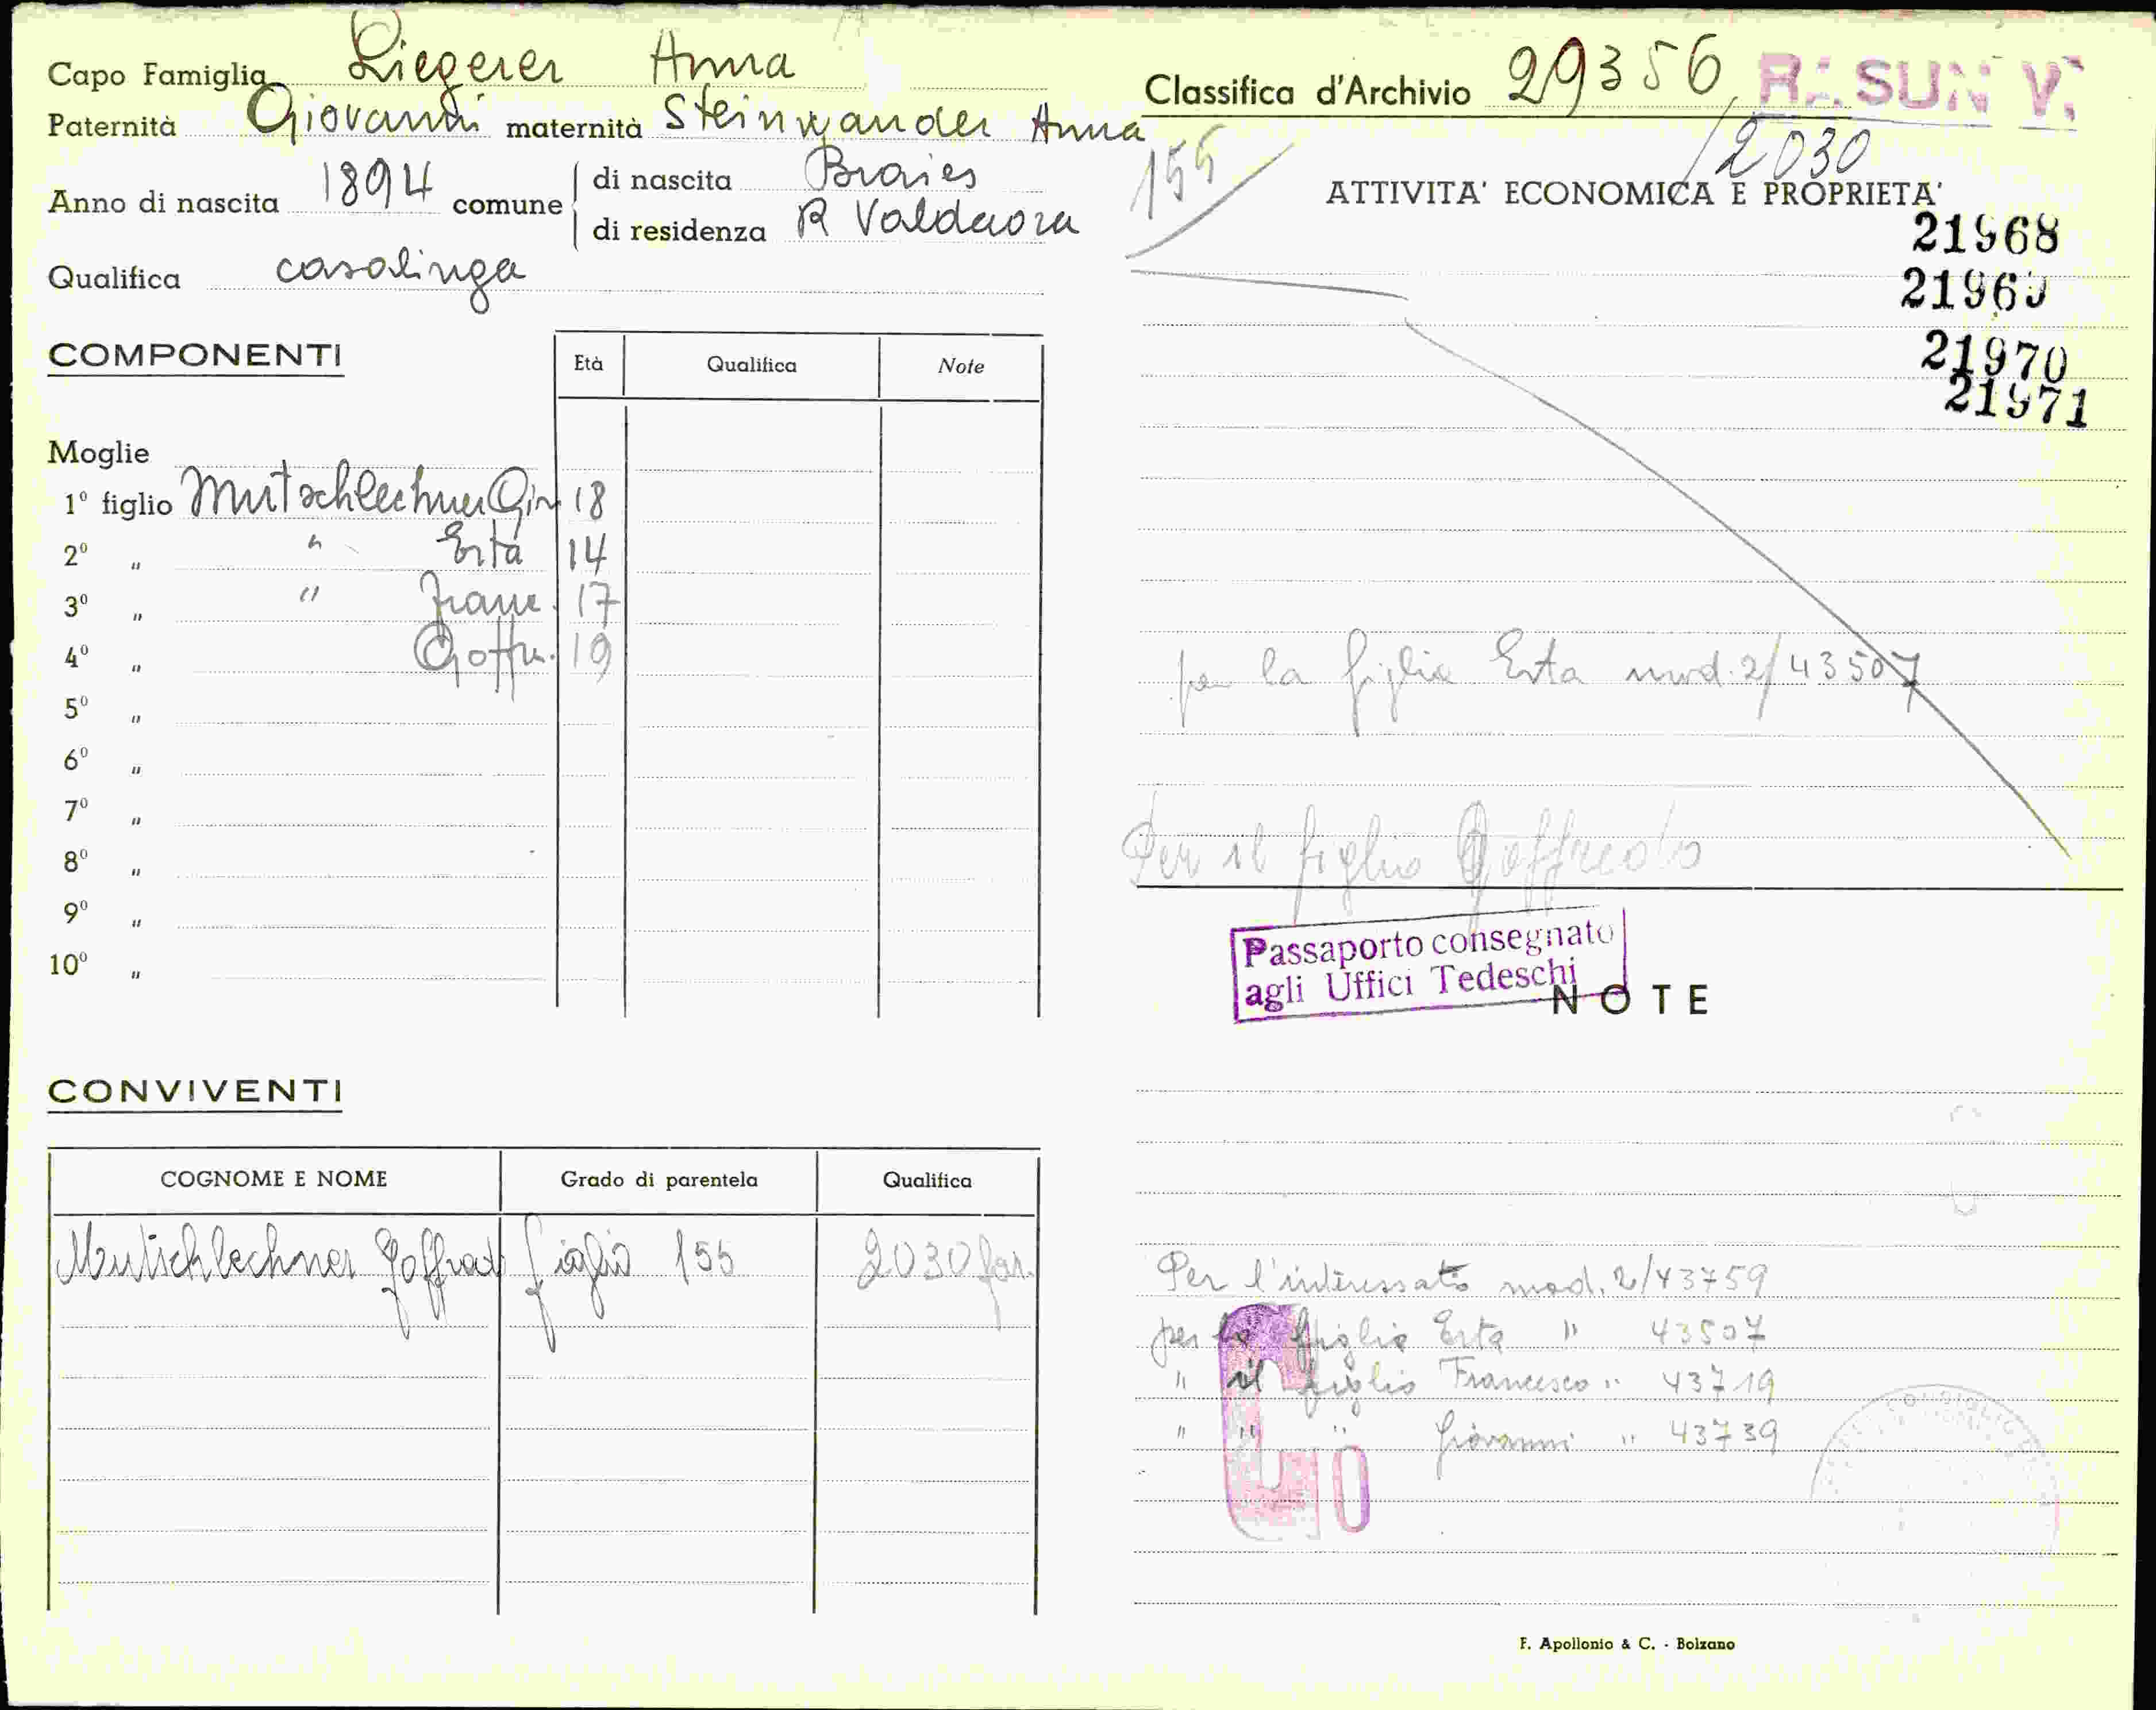 Capo Famiglia Liegerer Anna
Paternità Giovanni maternità Steinwander Anna
Anno di nascita 1894 comune di nascita Braies
di residenza R Valdaora
Qualifica casalinga
COMPONENTI Età Qualifica Note
Moglie
1º figlio Mutschlechner Giov 18
2º " " Erta 14
3º " " Franc. 17
4º " Goffr. 19
5º "
6º "
7º "
8º "
9º "
10º "
CONVIVENTI
COGNOME E NOME Grado di parentela Qualifica
Mutschlechner Goffredo figlio 155 2030 far.
Classifica d'Archivio 29356 RASUN V.
/2030
155
ATTIVITA' ECONOMICA E PROPRIETA'
21968
21969
21970
21971
per la figlia Erta mod. 2/43507
Per il figlio Goffredo
Passaporto consegnato
agli Uffici Tedeschi
NOTE
Per l'interessato mod. 2/43759
per la figlia Erta " 43507
" il figlio Francesco " 43719
" " " Giovanni " 43739
F. Apollonio & C. - Bolzano